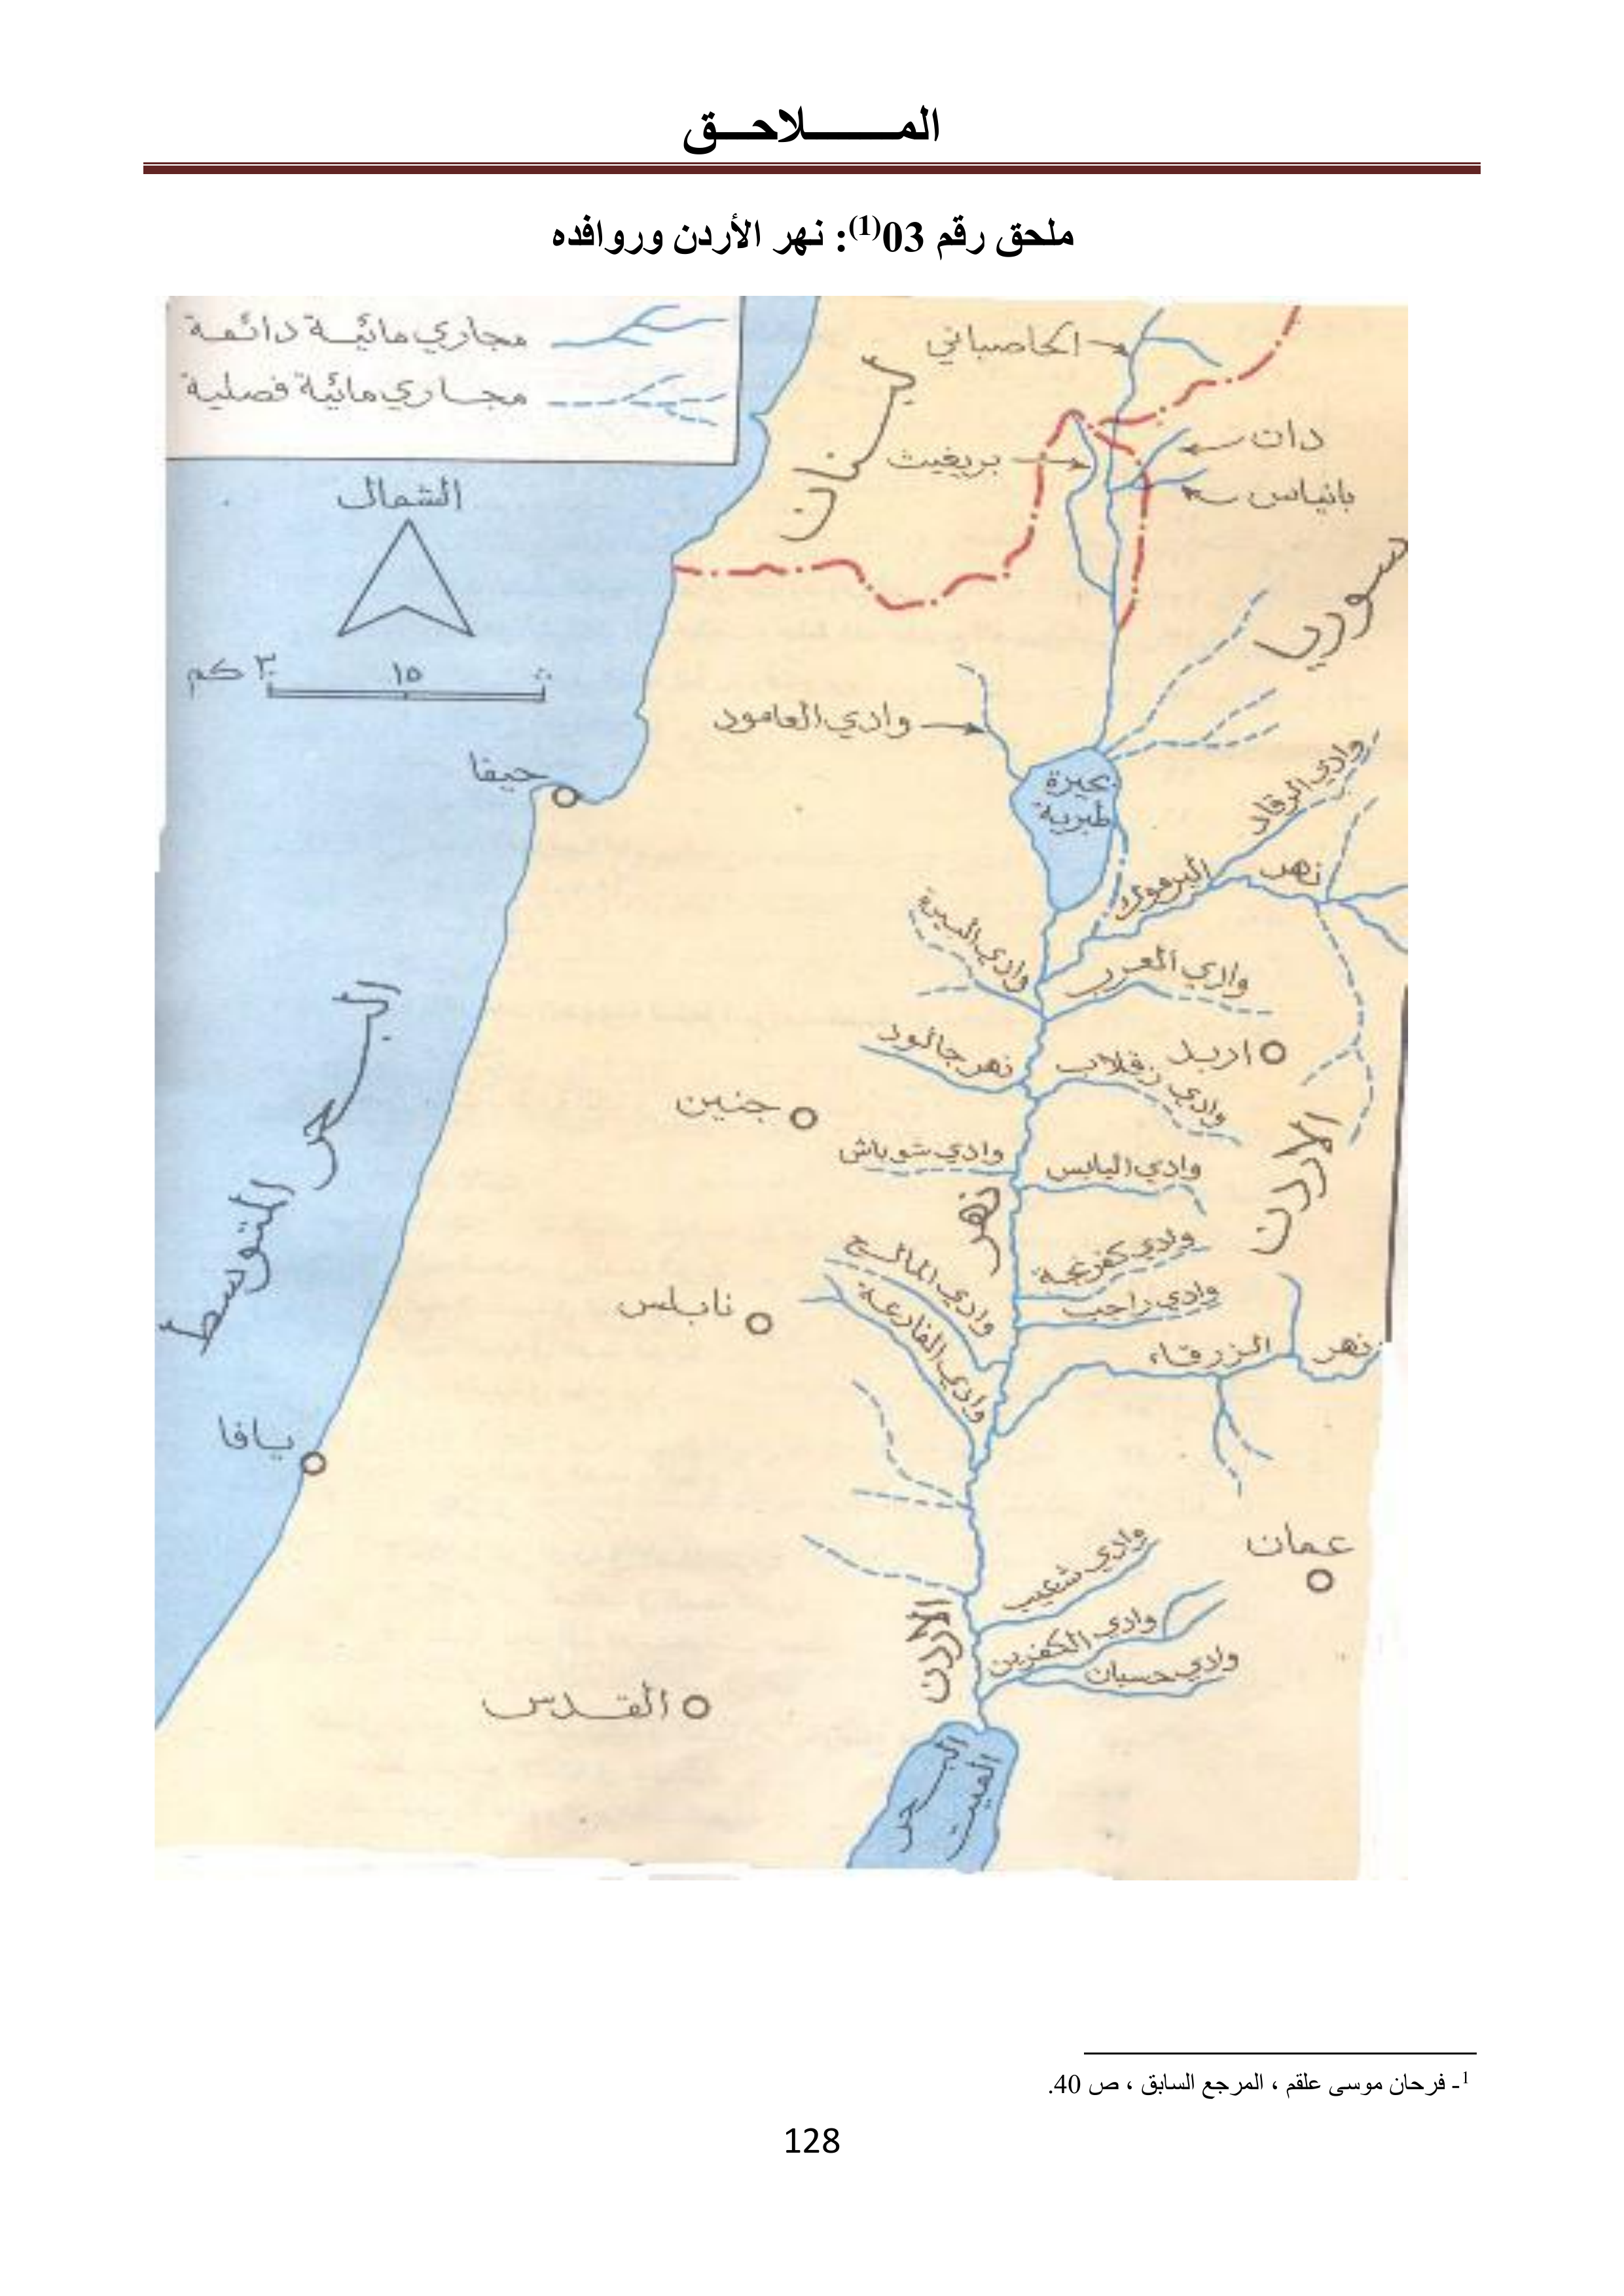 المـــــــلاحـــق
ملحق رقم 03(1): نهر الأردن وروافده
مجاري مائية دائمة
مجاري مائية فصلية
الشمال
٣٠ كم ١٥ ٠
الحاصباني
لبنان
دان
بريغيث
بانياس
سوريا
وادي العامود
حيفا
بحيرة
طبرية
وادي الرقاد
نهر
اليرموك
وادي البيرة
وادي العرب
نهر جالود
وادي زقلاب
اربد
جنين
وادي شوباش
وادي اليابس
البحر المتوسط
الأردن
نهر
وادي كفرنجة
وادي المالح
وادي راجب
نابلس
وادي الفارعة
نهر الزرقاء
يافا
عمان
وادي شعيب
الأردن
وادي الكفرين
وادي حسبان
القدس
البحر
الميت
1- فرحان موسى علقم ، المرجع السابق ، ص 40.
128